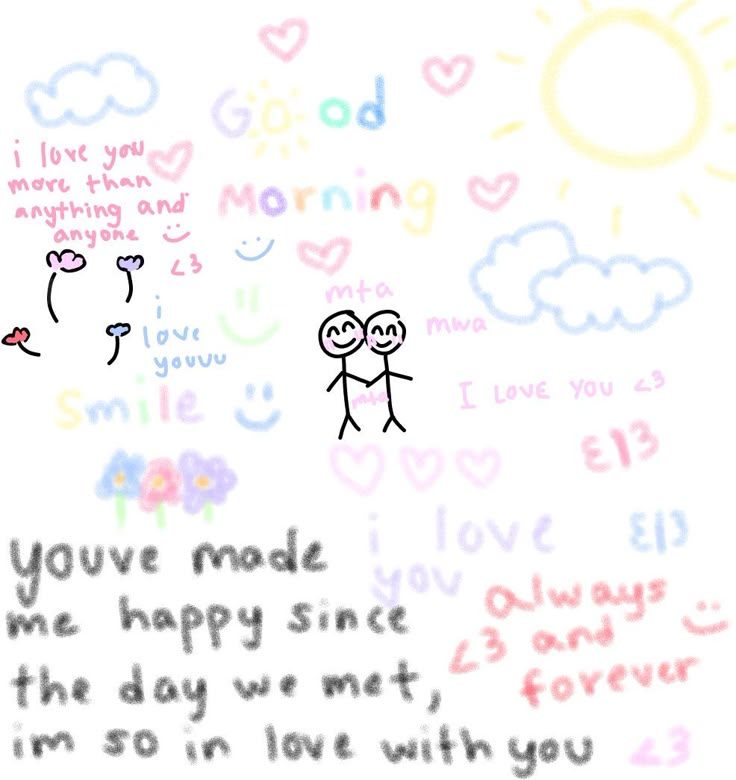 Good
Morning
i love you
more than
anything and
anyone :)
<3
:)
i
love
youuu
:)
mta
mwa
mta
Smile :)
I LOVE YOU <3
ε|3
i love
you
ε|3
youve made
me happy since
the day we met,
im so in love with you <3
always
<3 and :)
forever